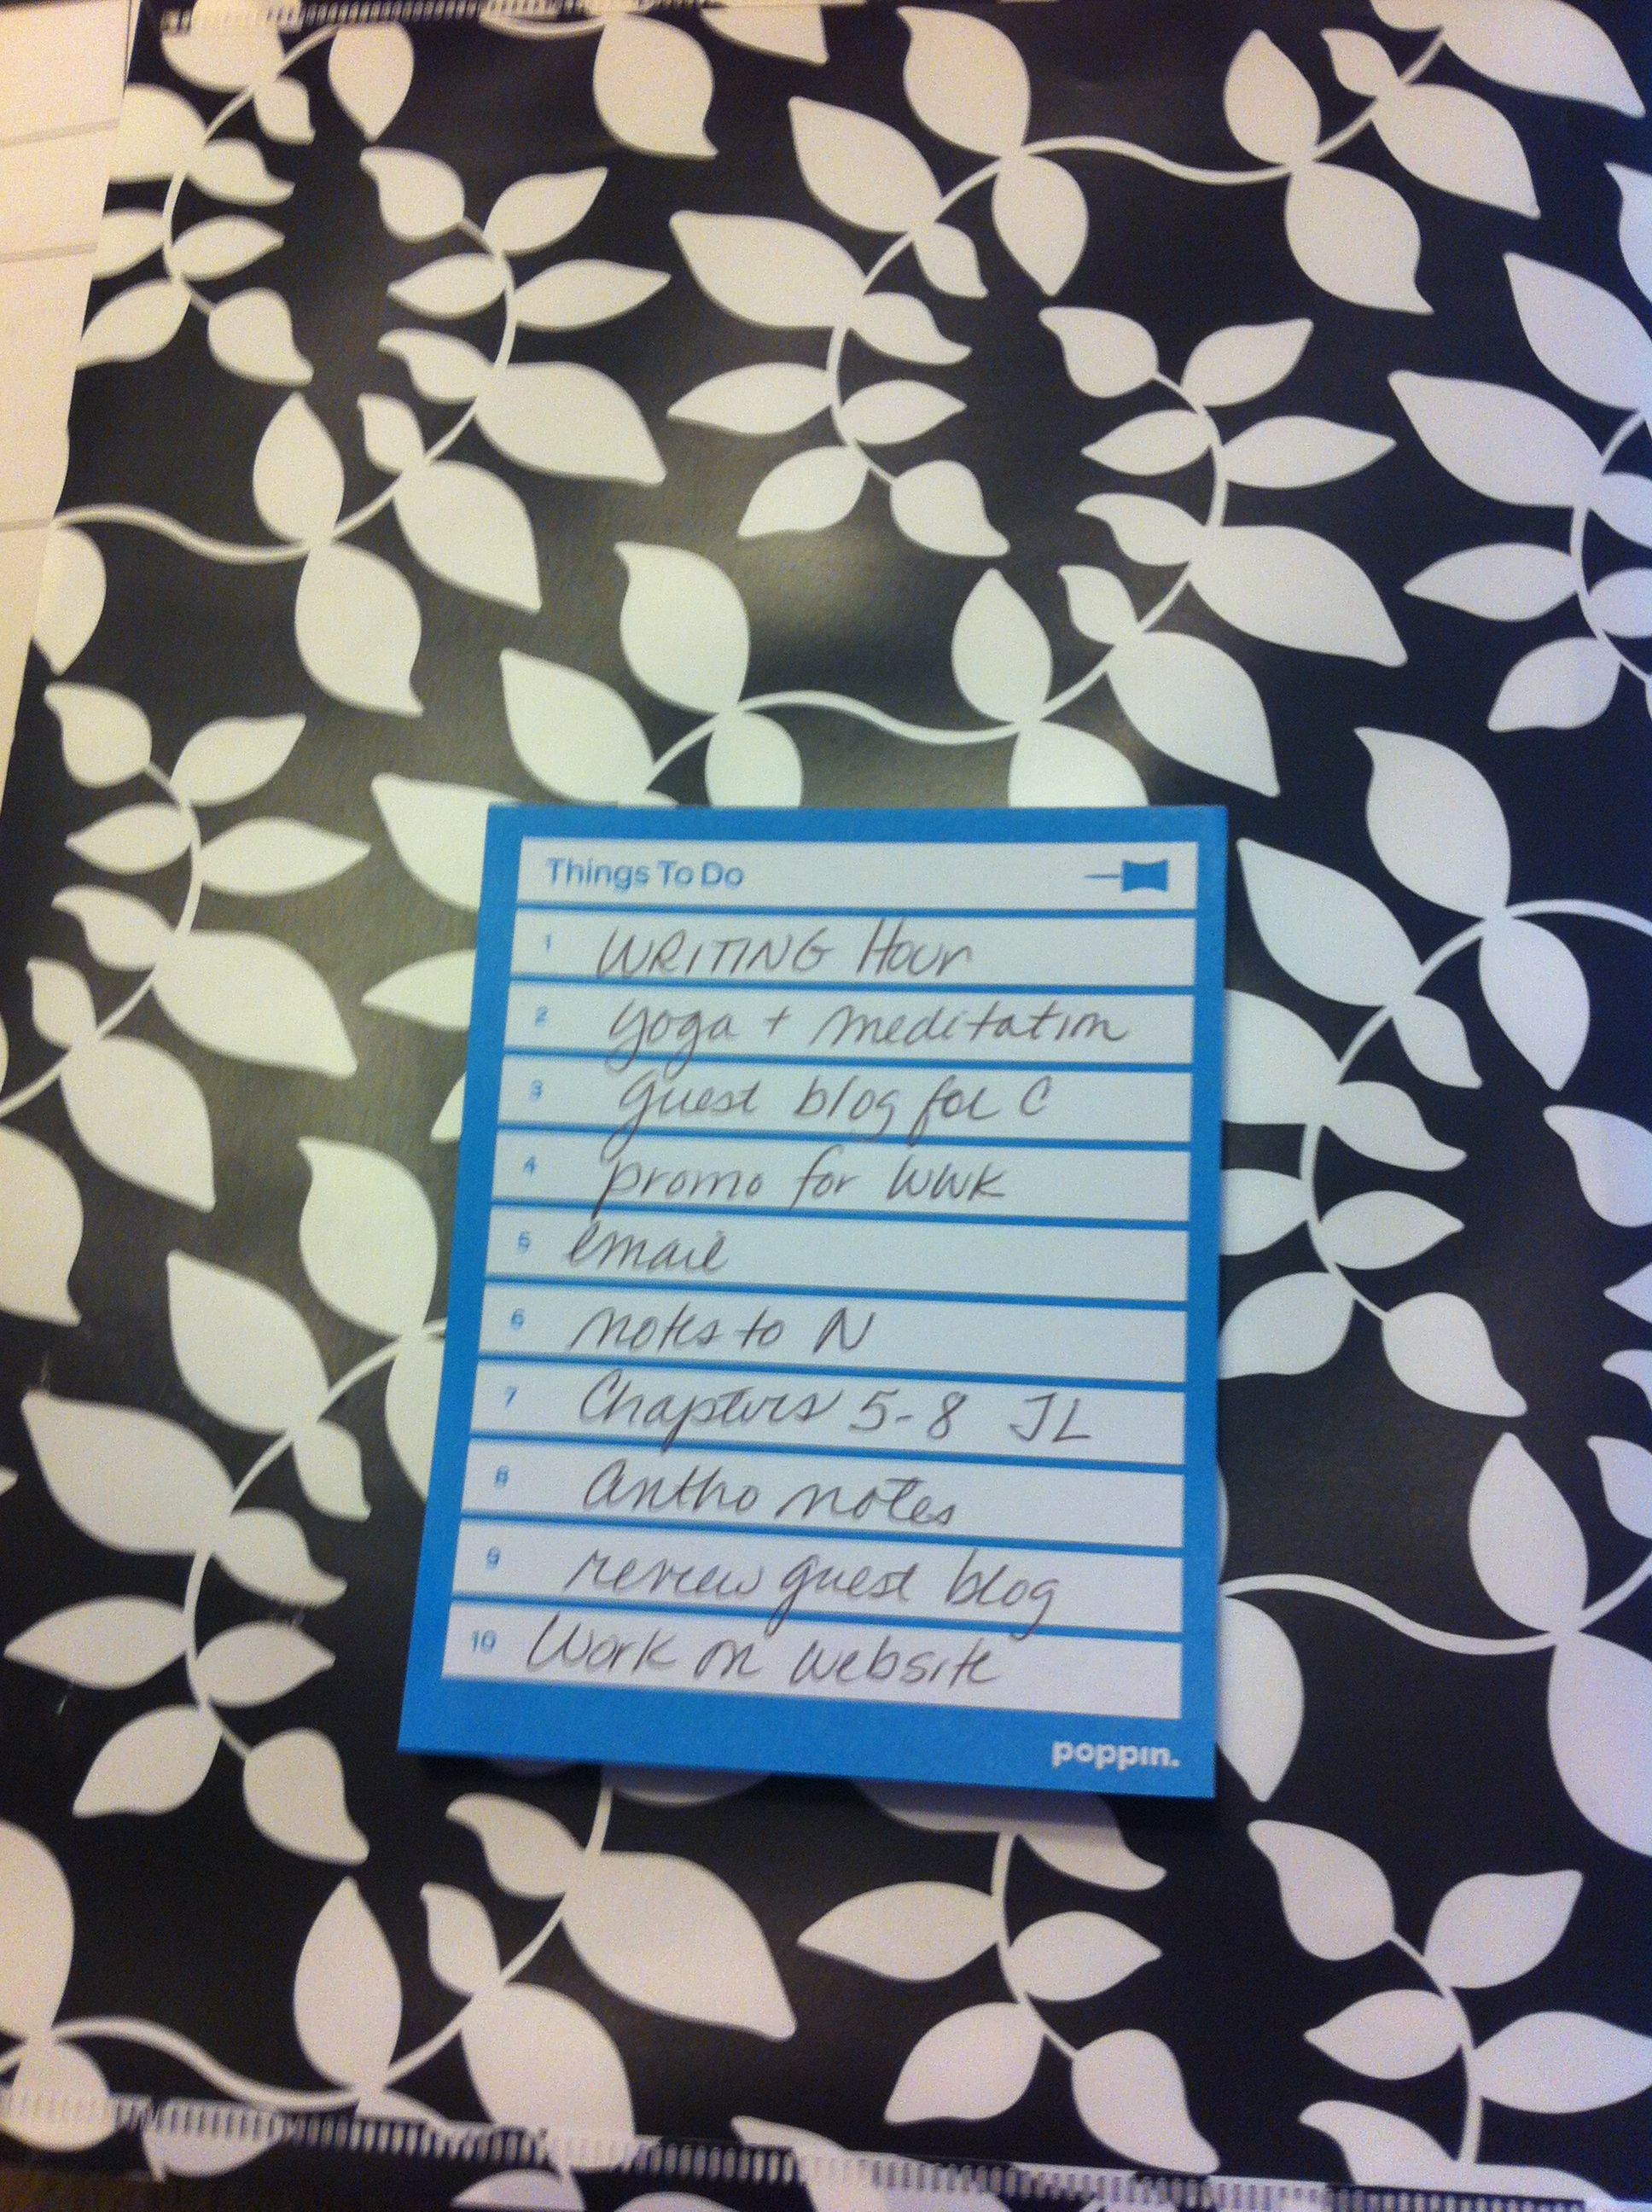 Things To Do
1 WRITING Hour
2 yoga + meditation
3 guest blog for C
4 promo for WWK
5 email
6 notes to N
7 Chapters 5-8 JL
8 Antho notes
9 review guest blog
10 Work on website
poppin.